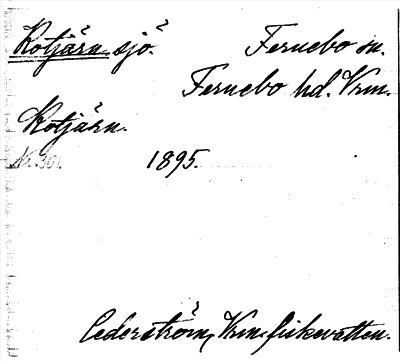 Kotjärn sjö. Fernebo sn.
Fernebo hd. Vrm.
Kotjärn.
1895.
Cederström, Vrm. fiskevatten.